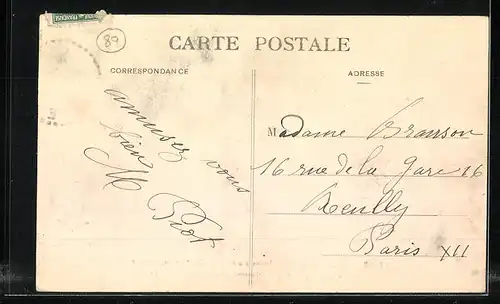 89
CARTE POSTALE
CORRESPONDANCE
ADRESSE
amusez vous
bien
M Biot
Madame Branson
16 rue de la Gare 16
Reuilly
Paris XII